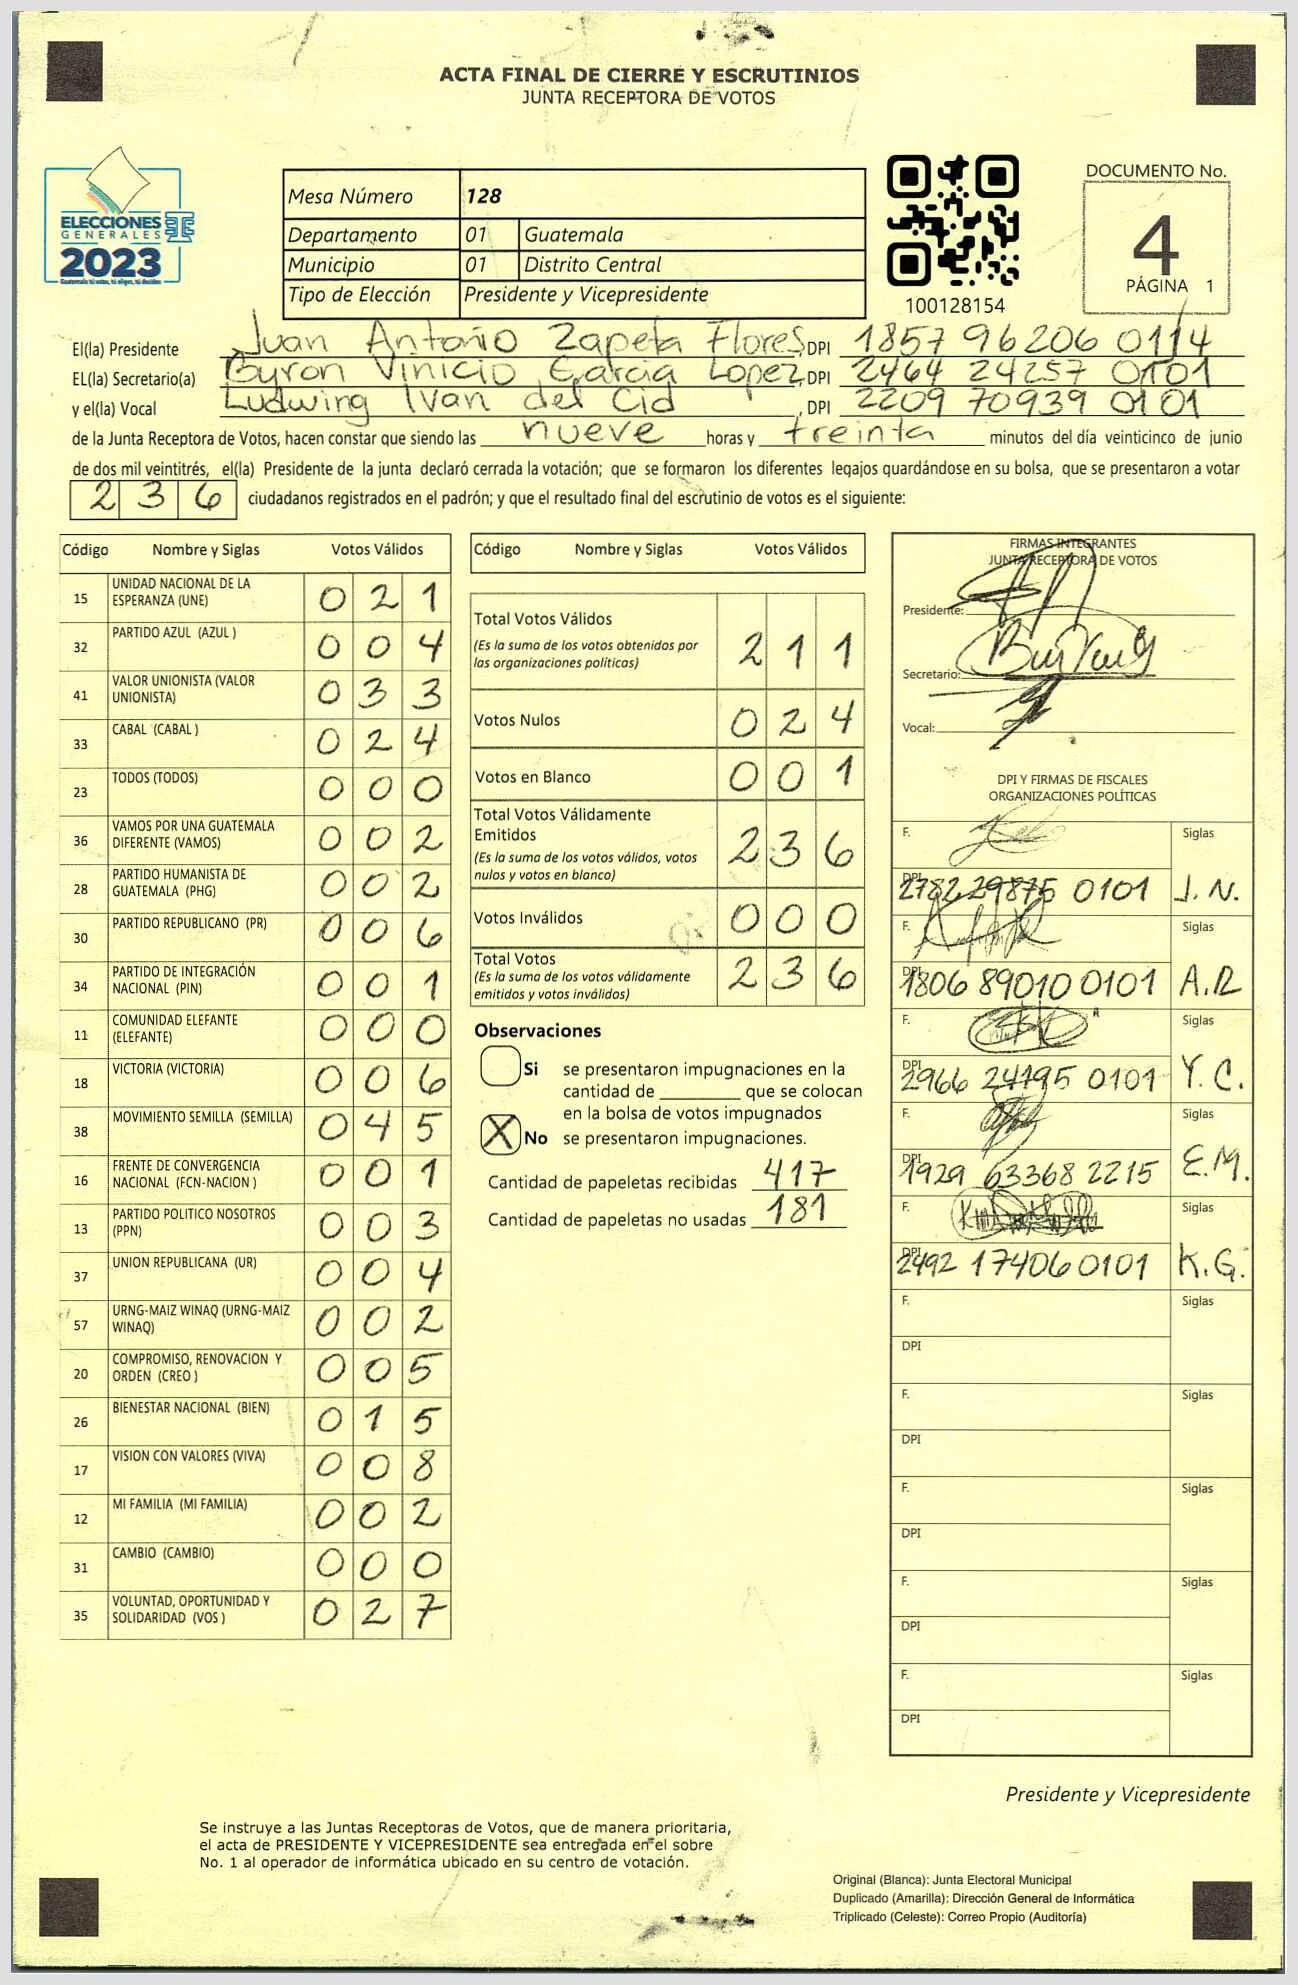 ACTA FINAL DE CIERRE Y ESCRUTINIOS
JUNTA RECEPTORA DE VOTOS
ELECCIONES
GENERALES
2023
Mesa Número 128
Departamento 01 Guatemala
Municipio 01 Distrito Central
Tipo de Elección Presidente y Vicepresidente
100128154
DOCUMENTO No.
4
PÁGINA 1
El(la) Presidente Juan Antonio Zapeta Flores, DPI 1857 96206 0114
EL(la) Secretario(a) Byron Vinicio Garcia Lopez, DPI 2464 24257 0101
y el(la) Vocal Ludwing Ivan del Cid, DPI 2209 70939 0101
de la Junta Receptora de Votos, hacen constar que siendo las nueve horas y treinta minutos del día veinticinco de junio
de dos mil veintitrés, el(la) Presidente de la junta declaró cerrada la votación; que se formaron los diferentes legajos guardándose en su bolsa, que se presentaron a votar
236 ciudadanos registrados en el padrón; y que el resultado final del escrutinio de votos es el siguiente:
Código Nombre y Siglas Votos Válidos
15 UNIDAD NACIONAL DE LA
ESPERANZA (UNE) 021
32 PARTIDO AZUL (AZUL ) 004
41 VALOR UNIONISTA (VALOR
UNIONISTA) 033
33 CABAL (CABAL ) 024
23 TODOS (TODOS) 000
36 VAMOS POR UNA GUATEMALA
DIFERENTE (VAMOS) 002
28 PARTIDO HUMANISTA DE
GUATEMALA (PHG) 002
30 PARTIDO REPUBLICANO (PR) 006
34 PARTIDO DE INTEGRACIÓN
NACIONAL (PIN) 001
11 COMUNIDAD ELEFANTE
(ELEFANTE) 000
18 VICTORIA (VICTORIA) 006
38 MOVIMIENTO SEMILLA (SEMILLA) 045
16 FRENTE DE CONVERGENCIA
NACIONAL (FCN-NACION ) 001
13 PARTIDO POLITICO NOSOTROS
(PPN) 003
37 UNION REPUBLICANA (UR) 004
57 URNG-MAIZ WINAQ (URNG-MAIZ
WINAQ) 002
20 COMPROMISO, RENOVACION Y
ORDEN (CREO ) 005
26 BIENESTAR NACIONAL (BIEN) 015
17 VISION CON VALORES (VIVA) 008
12 MI FAMILIA (MI FAMILIA) 002
31 CAMBIO (CAMBIO) 000
35 VOLUNTAD, OPORTUNIDAD Y
SOLIDARIDAD (VOS ) 027
Código Nombre y Siglas Votos Válidos
Total Votos Válidos
(Es la suma de los votos obtenidos por
las organizaciones políticas) 211
Votos Nulos 024
Votos en Blanco 001
Total Votos Válidamente
Emitidos
(Es la suma de los votos válidos, votos
nulos y votos en blanco) 236
Votos Inválidos 000
Total Votos
(Es la suma de los votos válidamente
emitidos y votos inválidos) 236
Observaciones
Si se presentaron impugnaciones en la
cantidad de ________ que se colocan
en la bolsa de votos impugnados
X No se presentaron impugnaciones.
Cantidad de papeletas recibidas 417
Cantidad de papeletas no usadas 181
FIRMAS INTEGRANTES
JUNTA RECEPTORA DE VOTOS
Presidente:
Secretario:
Vocal:
DPI Y FIRMAS DE FISCALES
ORGANIZACIONES POLÍTICAS
F. Siglas
DPI 2782 29875 0101 J.N.
F. Siglas
DPI 1806 89010 0101 A.R
F. Siglas
DPI 2966 24195 0101 Y.C.
F. Siglas
DPI 1929 63368 2215 E.M.
F. Siglas
DPI 2492 17406 0101 K.G.
F. Siglas
DPI
F. Siglas
DPI
F. Siglas
DPI
F. Siglas
DPI
F. Siglas
DPI
Presidente y Vicepresidente
Se instruye a las Juntas Receptoras de Votos, que de manera prioritaria,
el acta de PRESIDENTE Y VICEPRESIDENTE sea entregada en el sobre
No. 1 al operador de informática ubicado en su centro de votación.
Original (Blanca): Junta Electoral Municipal
Duplicado (Amarilla): Dirección General de Informática
Triplicado (Celeste): Correo Propio (Auditoría)